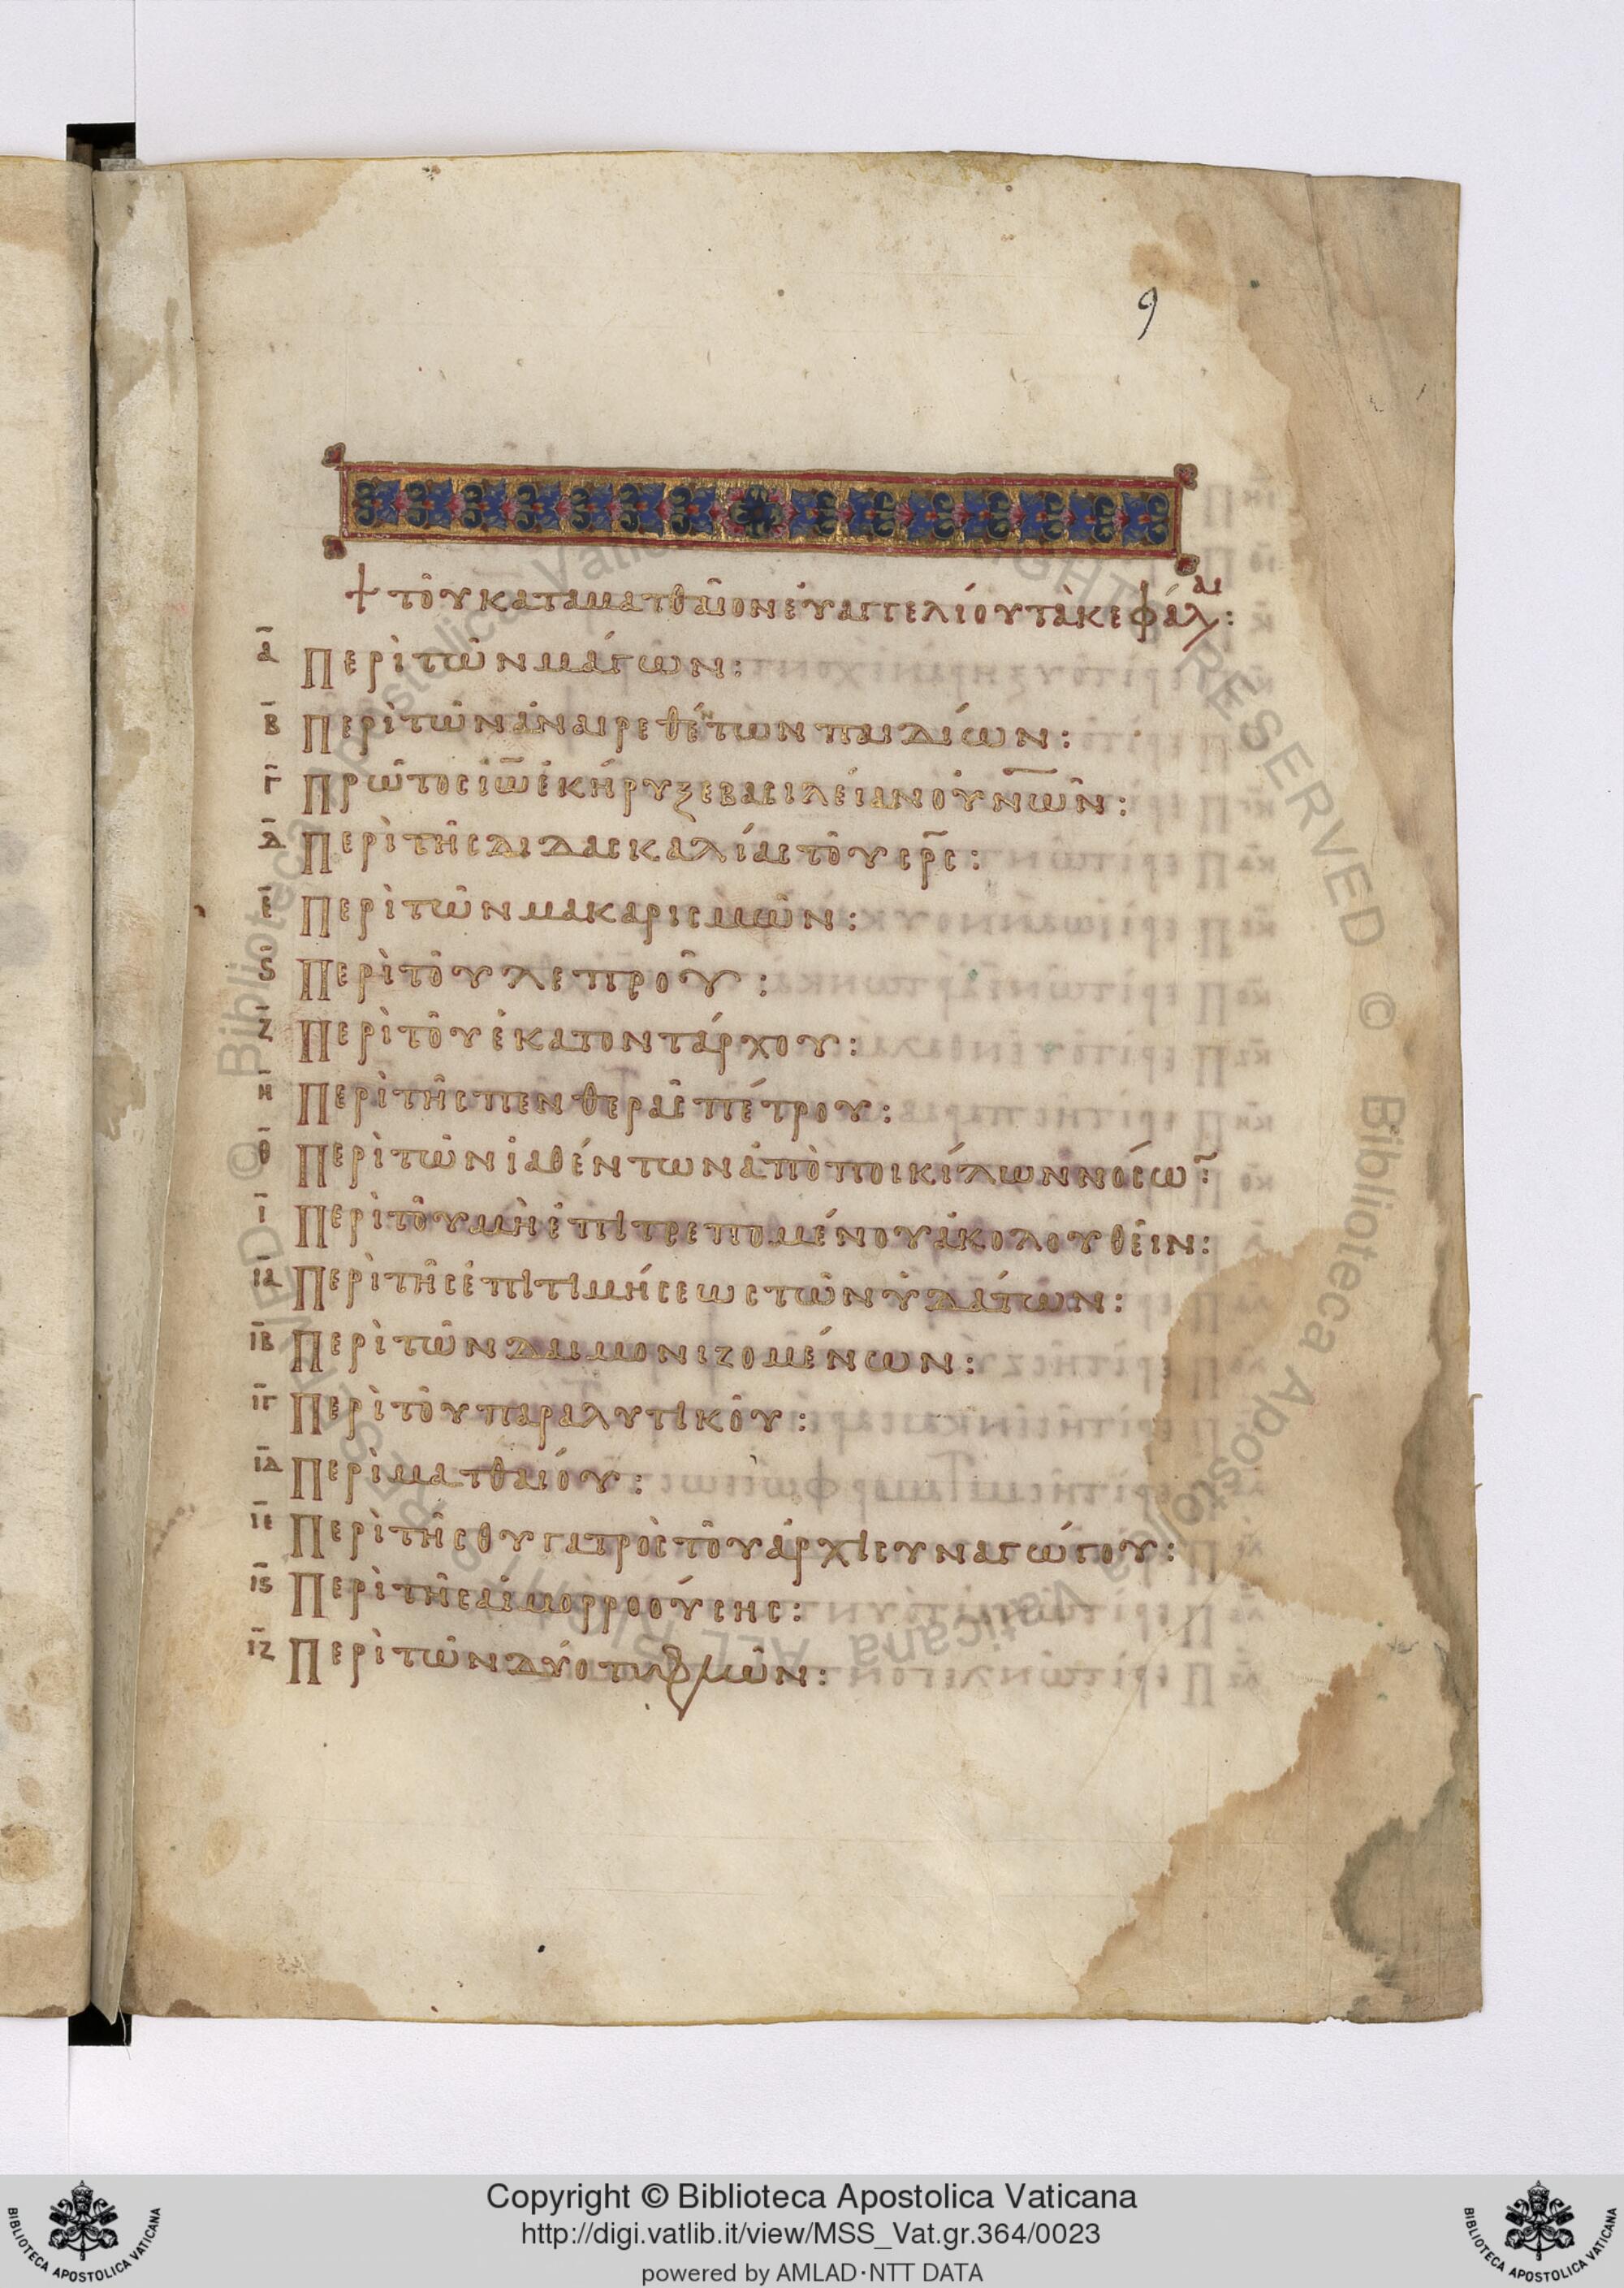 9
+ τοῦ κατὰ ματθαῖον εὐαγγελίου τὰ κεφάλαι:
α̅ Περὶ τῶν μάγων:
β̅ Περὶ τῶν ἀναιρεθέντων παιδίων:
γ̅ Πρῶτος ἰω̅ ἐκήρυξε βασιλείαν οὐνω̅ν:
δ̅ Περὶ τῆς διδασκαλίας τοῦ σρ̅ς:
ε̅ Περὶ τῶν μακαρισμῶν:
ς̅ Περὶ τοῦ λεπροῦ:
ζ̅ Περὶ τοῦ ἑκατοντάρχου:
η̅ Περὶ τῆς πενθερᾶς πέτρου:
θ̅ Περὶ τῶν ἰαθέντων ἀπὸ ποικίλων νόσω̅:
ι̅ Περὶ τοῦ μὴ ἐπιτρεπομένου ἀκολουθεῖν:
ια̅ Περὶ τῆς ἐπιτιμήσεως τῶν ὑδάτων:
ιβ̅ Περὶ τῶν δαιμονιζομένων:
ιγ̅ Περὶ τοῦ παραλυτικοῦ:
ιδ̅ Περὶ ματθαίου:
ιε̅ Περὶ τῆς θυγατρὸς τοῦ ἀρχισυναγώγου:
ις̅ Περὶ τῆς αἱμορροούσης:
ιζ̅ Περὶ τῶν δύο τυφλῶν:
Copyright © Biblioteca Apostolica Vaticana
http://digi.vatlib.it/view/MSS_Vat.gr.364/0023
powered by AMLAD·NTT DATA
BIBLIOTECA APOSTOLICA VATICANA
BIBLIOTECA APOSTOLICA VATICANA